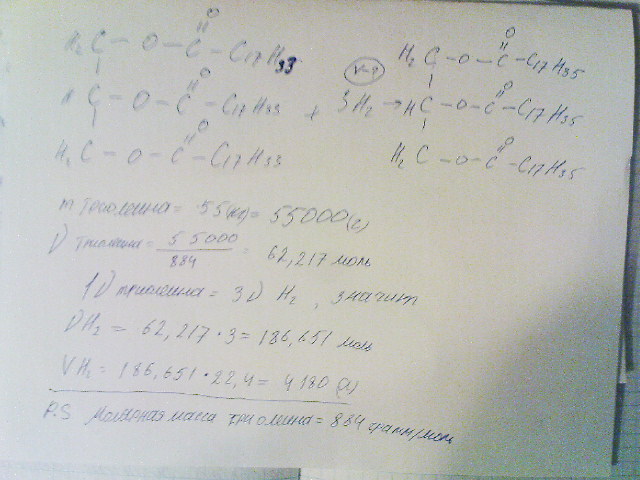 H₂C – O – C(=O) – C₁₇H₃₃     V-?     H₂C – O – C(=O) – C₁₇H₃₅
HC – O – C(=O) – C₁₇H₃₃ + 3H₂ → HC – O – C(=O) – C₁₇H₃₅
H₂C – O – C(=O) – C₁₇H₃₃     H₂C – O – C(=O) – C₁₇H₃₅
m триолеина = 55(кг) = 55000(г)
ν триолеина = 55000/884 = 62,217 моль
1ν триолеина = 3ν H₂, значит
νH₂ = 62,217 · 3 = 186,651 моль
VH₂ = 186,651 · 22,4 = 4180 (л)
P.S Молярная масса триолеина = 884 грамм/моль